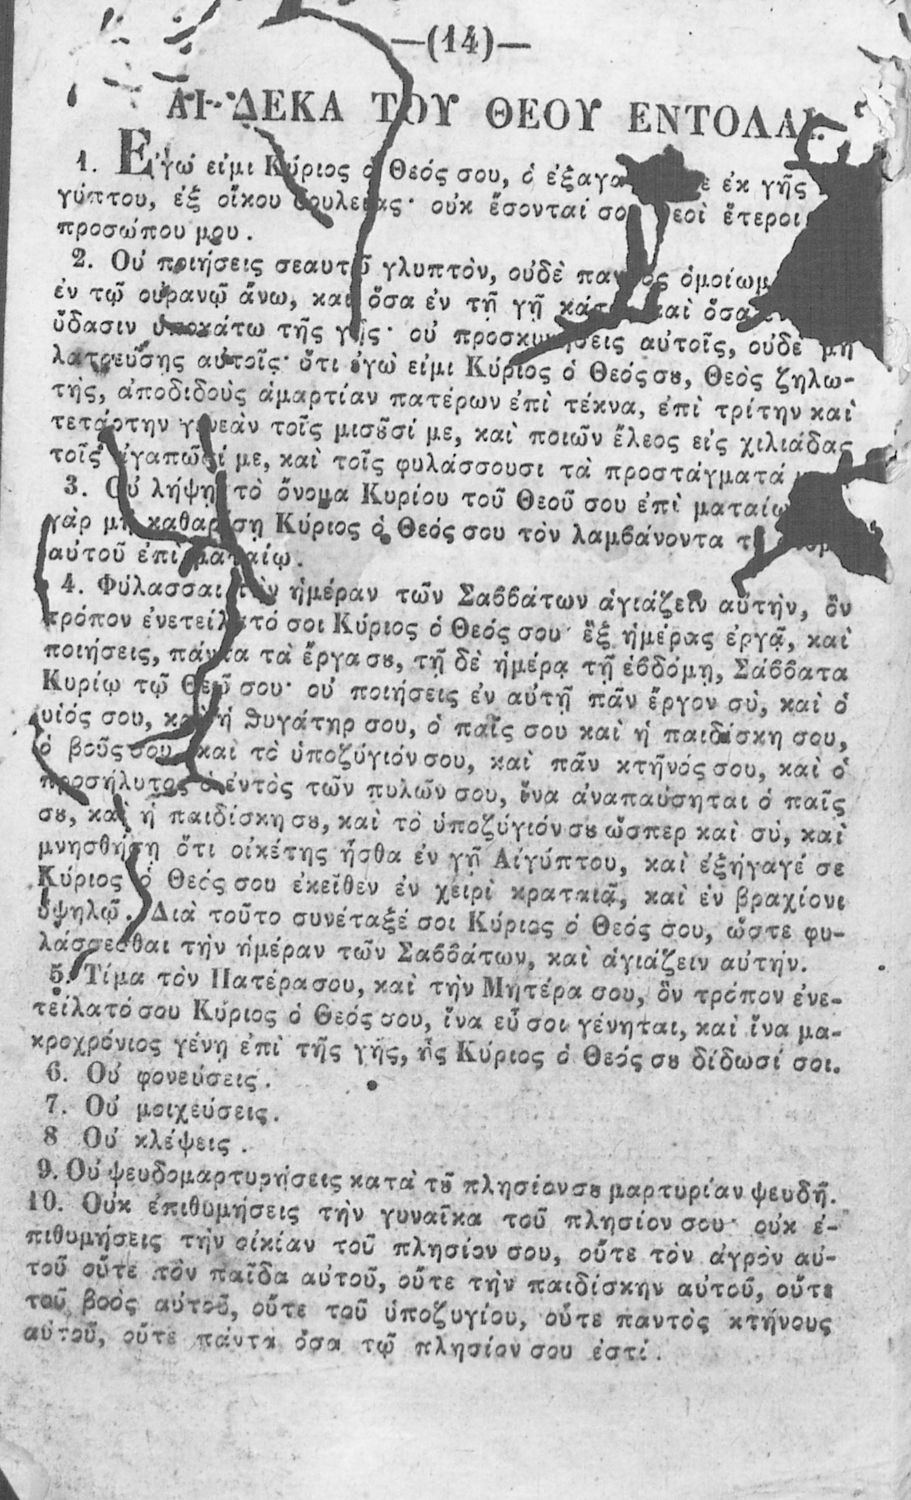 —(14)—
ΑΙ ΔΕΚΑ ΤΟΥ ΘΕΟΥ ΕΝΤΟΛΑΙ.
1. Εγώ εἰμι Κύριος ὁ Θεός σου, ὁ ἐκ γῆς
γύπτου, ἐξ οἴκου δουλείας· οὐκ ἔσονταί ἕτεροι
προσώπου μου.
2. Οὐ ποιήσεις σεαυτῷ γλυπτὸν, οὐδὲ
ἐν τῷ οὐρανῷ ἄνω, καὶ ὅσα ἐν τῇ γῇ καὶ
ὕδασιν ὑποκάτω τῆς γῆς· οὐ προσκυνήσεις αὐτοῖς, οὐδὲ μὴ
λατρεύσῃς αὐτοῖς· ὅτι ἐγώ εἰμι Κύριος ὁ Θεός σȣ, Θεὸς ζηλω-
τὴς, ἀποδιδοὺς ἁμαρτίαν πατέρων ἐπὶ τέκνα, ἐπὶ τρίτην καὶ
τετάρτην γενεὰν τοῖς μισȣσί με, καὶ ποιῶν ἔλεος εἰς χιλιάδας
τοῖς ἀγαπῶσί με, καὶ τοῖς φυλάσσουσι τὰ προστάγματά
3. Οὐ λήψῃ τὸ ὄνομα Κυρίου τοῦ Θεοῦ σου ἐπὶ
γὰρ μὴ καθαρίσῃ Κύριος ὁ Θεός σου τὸν λαμβάνοντα
αὐτοῦ ἐπὶ ματαίῳ.
4. Φύλασσαι τὴν ἡμέραν τῶν Σαββάτων ἁγιάζειν αὐτὴν, ὃν
τρόπον ἐνετείλατό σοι Κύριος ὁ Θεός σου· ἓξ ἡμέρας ἐργᾷ, καὶ
ποιήσεις, πάντα τὰ ἔργα σȣ, τῇ δὲ ἡμέρᾳ τῇ ἑβδόμῃ, Σάββατα
Κυρίῳ τῷ Θεῷ σου· οὐ ποιήσεις ἐν αὐτῇ πᾶν ἔργον σὺ, καὶ ὁ
υἱός σου, καὶ ἡ ϑυγάτηρ σου, ὁ παῖς σου καὶ ἡ παιδίσκη σου,
ὁ βοῦς σου, καὶ τὸ ὑποζύγιόν σου, καὶ πᾶν κτῆνός σου, καὶ ὁ
προσήλυτος ὁ ἐντὸς τῶν πυλῶν σου, ἵνα ἀναπαύσηται ὁ παῖς
σȣ, καὶ ἡ παιδίσκη σȣ, καὶ τὸ ὑποζύγιόν σȣ ὥσπερ καὶ σὺ, καὶ
μνησθήσῃ ὅτι οἰκέτης ἦσθα ἐν γῇ Αἰγύπτου, καὶ ἐξήγαγέ σε
Κύριος ὁ Θεός σου ἐκεῖθεν ἐν χειρὶ κραταιᾷ, καὶ ἐν βραχίονι
ὑψηλῷ. Διὰ τοῦτο συνέταξέ σοι Κύριος ὁ Θεός σου, ὥστε φυ-
λάσσεσθαι τὴν ἡμέραν τῶν Σαββάτων, καὶ ἁγιάζειν αὐτήν.
5. Τίμα τὸν Πατέρα σου, καὶ τὴν Μητέρα σου, ὃν τρόπον ἐνε-
τείλατό σου Κύριος ὁ Θεός σου, ἵνα εὖ σοι γένηται, καὶ ἵνα μα-
κροχρόνιος γένῃ ἐπὶ τῆς γῆς, ἧς Κύριος ὁ Θεός σȣ δίδωσί σοι.
6. Οὐ φονεύσεις.
7. Οὐ μοιχεύσεις.
8 Οὐ κλέψεις.
9. Οὐ ψευδομαρτυρήσεις κατὰ τȣ πλησίον σȣ μαρτυρίαν ψευδῆ.
10. Οὐκ ἐπιθυμήσεις τὴν γυναῖκα τοῦ πλησίον σου· οὐκ ἐ-
πιθυμήσεις τὴν οἰκίαν τοῦ πλησίον σου, οὔτε τὸν ἀγρὸν αὐ-
τοῦ οὔτε τὸν παῖδα αὐτοῦ, οὔτε τὴν παιδίσκην αὐτοῦ, οὔτε
τοῦ βοὸς αὐτοῦ, οὔτε τοῦ ὑποζυγίου, οὔτε παντὸς κτήνους
αὐτοῦ, οὔτε πάντα ὅσα τῷ πλησίον σου ἐστί.